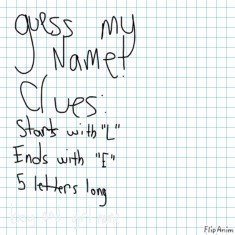 guess my
Name!
Clues:
Starts with "L"
Ends with "E"
5 letters long
FlipAnim